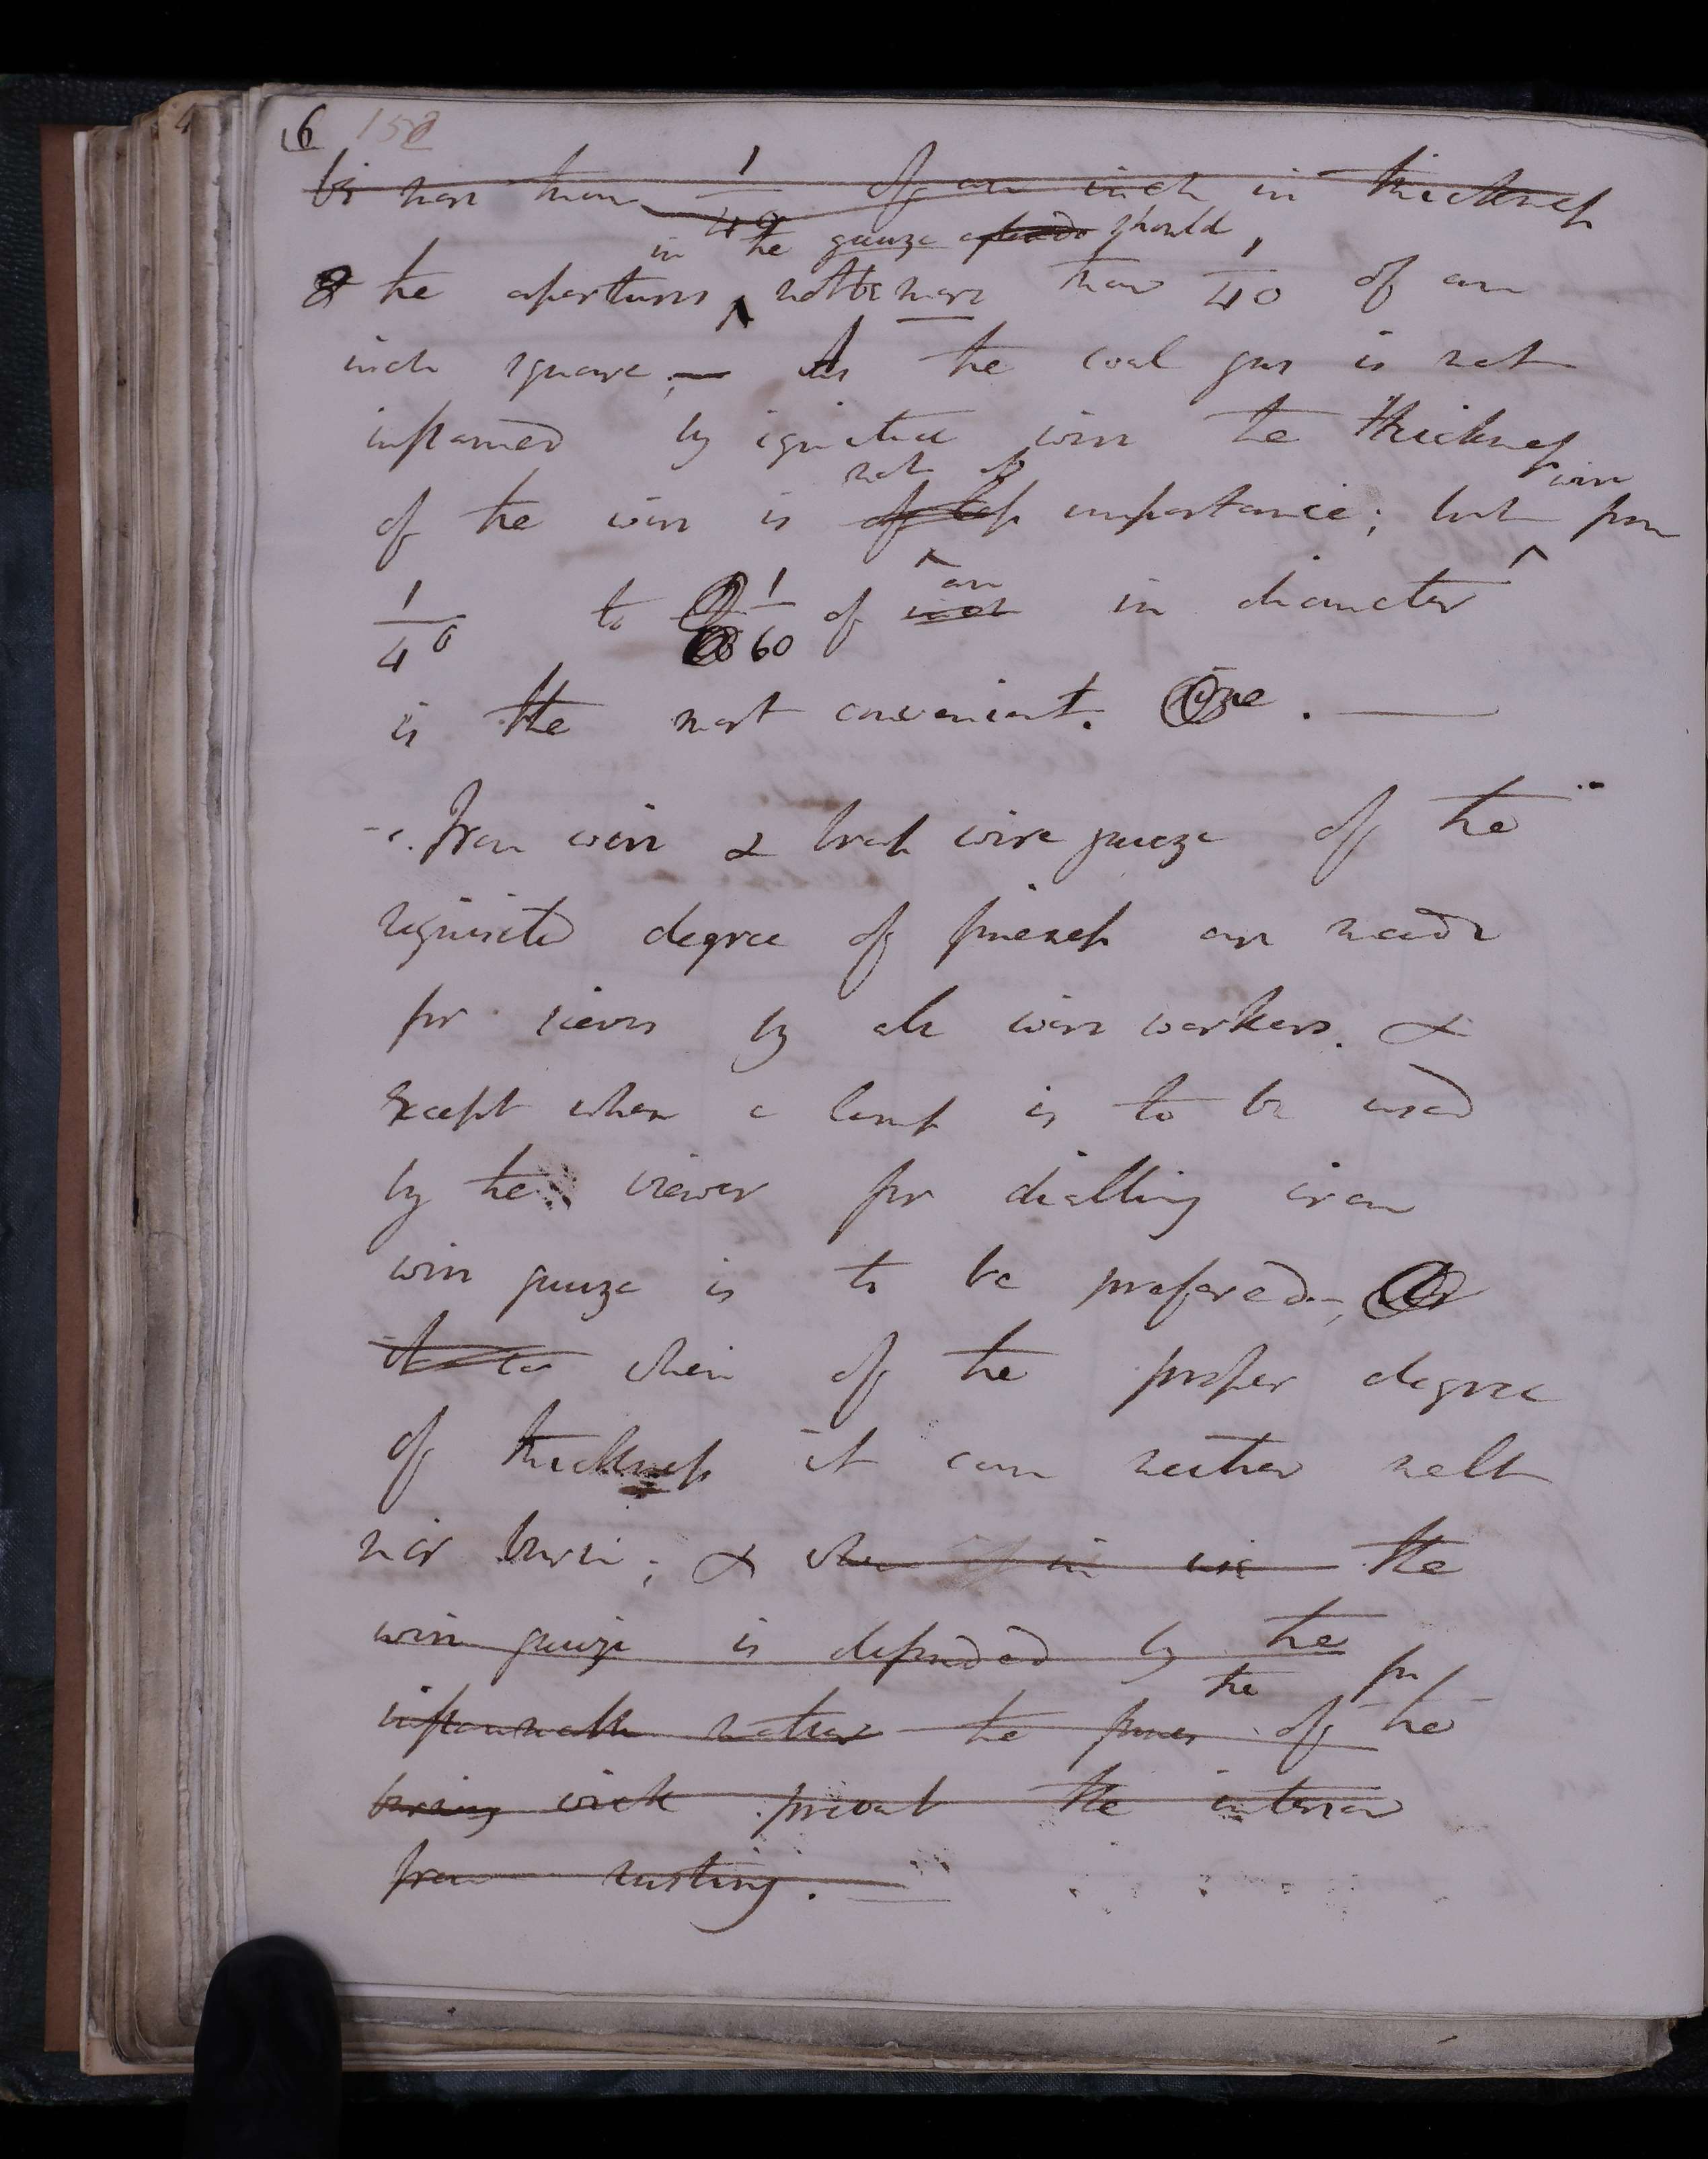 6 158
be more than 1/40 of an inch in thickness
in the gauze should
& the apertures not be more than 1/40 of an
inch square; — As the coal gas is not
inflamed by ignited wire the thickness
not of wire
of the wire is of less importance; but from
an
1/40 to 1/60 of inch in diameter
is the most convenient. One. —
Iron wire & brass wire gauze of the
requisite degree of fineness are made
for sieves by all wire workers. &
Except when a lamp is to be used
by the viewer for dialling iron
wire gauze is to be prefered —; Or
when of the proper degree
of thickness it can neither melt
nor burn; & when in use the
wire gauze is defended by the
the
inflammable matter the from of the
burning wick prevent the interior
from rusting. —